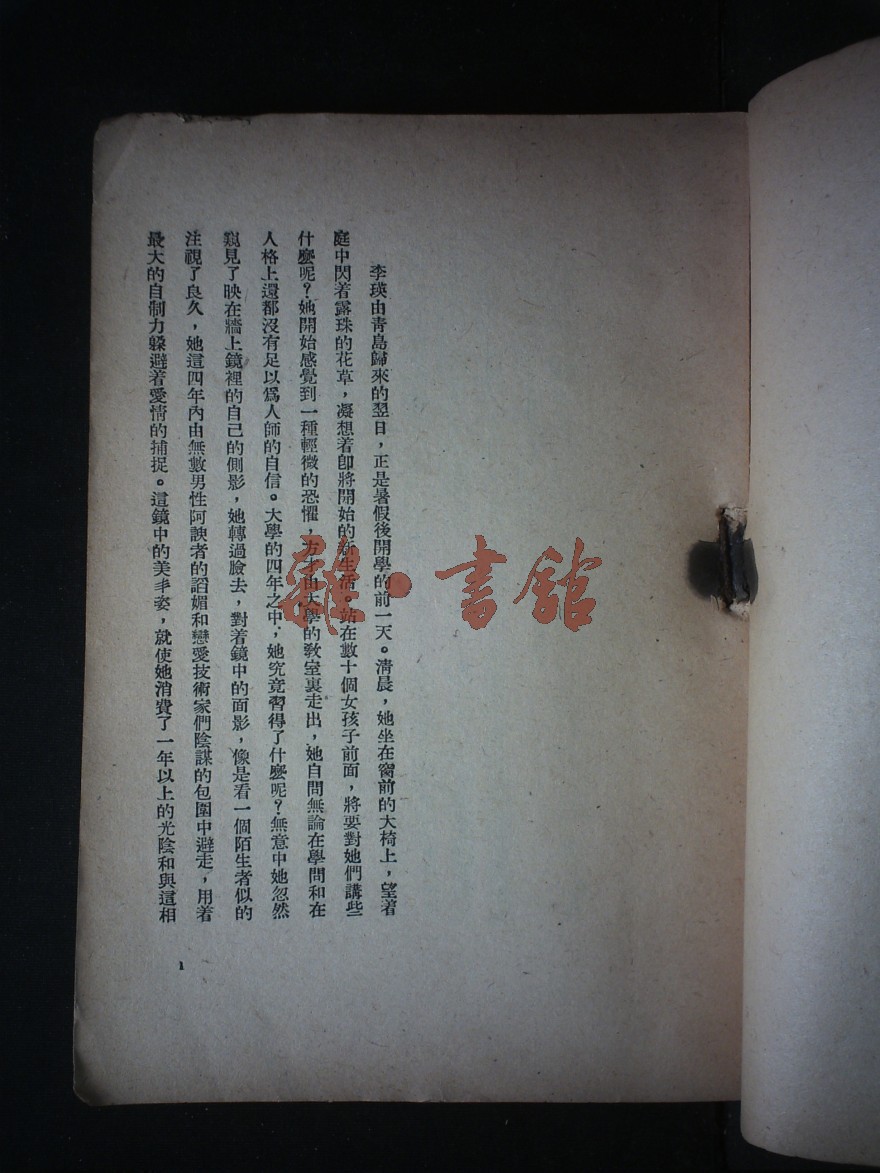 李瑛由青島歸來的翌日，正是暑假後開學的前一天。清晨，她坐在窗前的大椅上，望着
庭中閃着露珠的花草，凝想着卽將開始的新生活。站在數十個女孩子前面，將要對她們講些
什麼呢？她開始感覺到一種輕微的恐懼，方才由大學的教室裏走出，她自問無論在學問和在
人格上還都沒有足以爲人師的自信。大學的四年之中，她究竟習得了什麼呢？無意中她忽然
窺見了映在牆上鏡裡的自己的側影，她轉過臉去，對着鏡中的面影，像是看一個陌生者似的
注視了良久，她這四年內由無數男性阿諛者的諂媚和戀愛技術家們陰謀的包圍中避走，用着
最大的自制力躱避着愛情的捕捉。這鏡中的美丰姿，就使她消費了一年以上的光陰和與這相
1
雜·書館